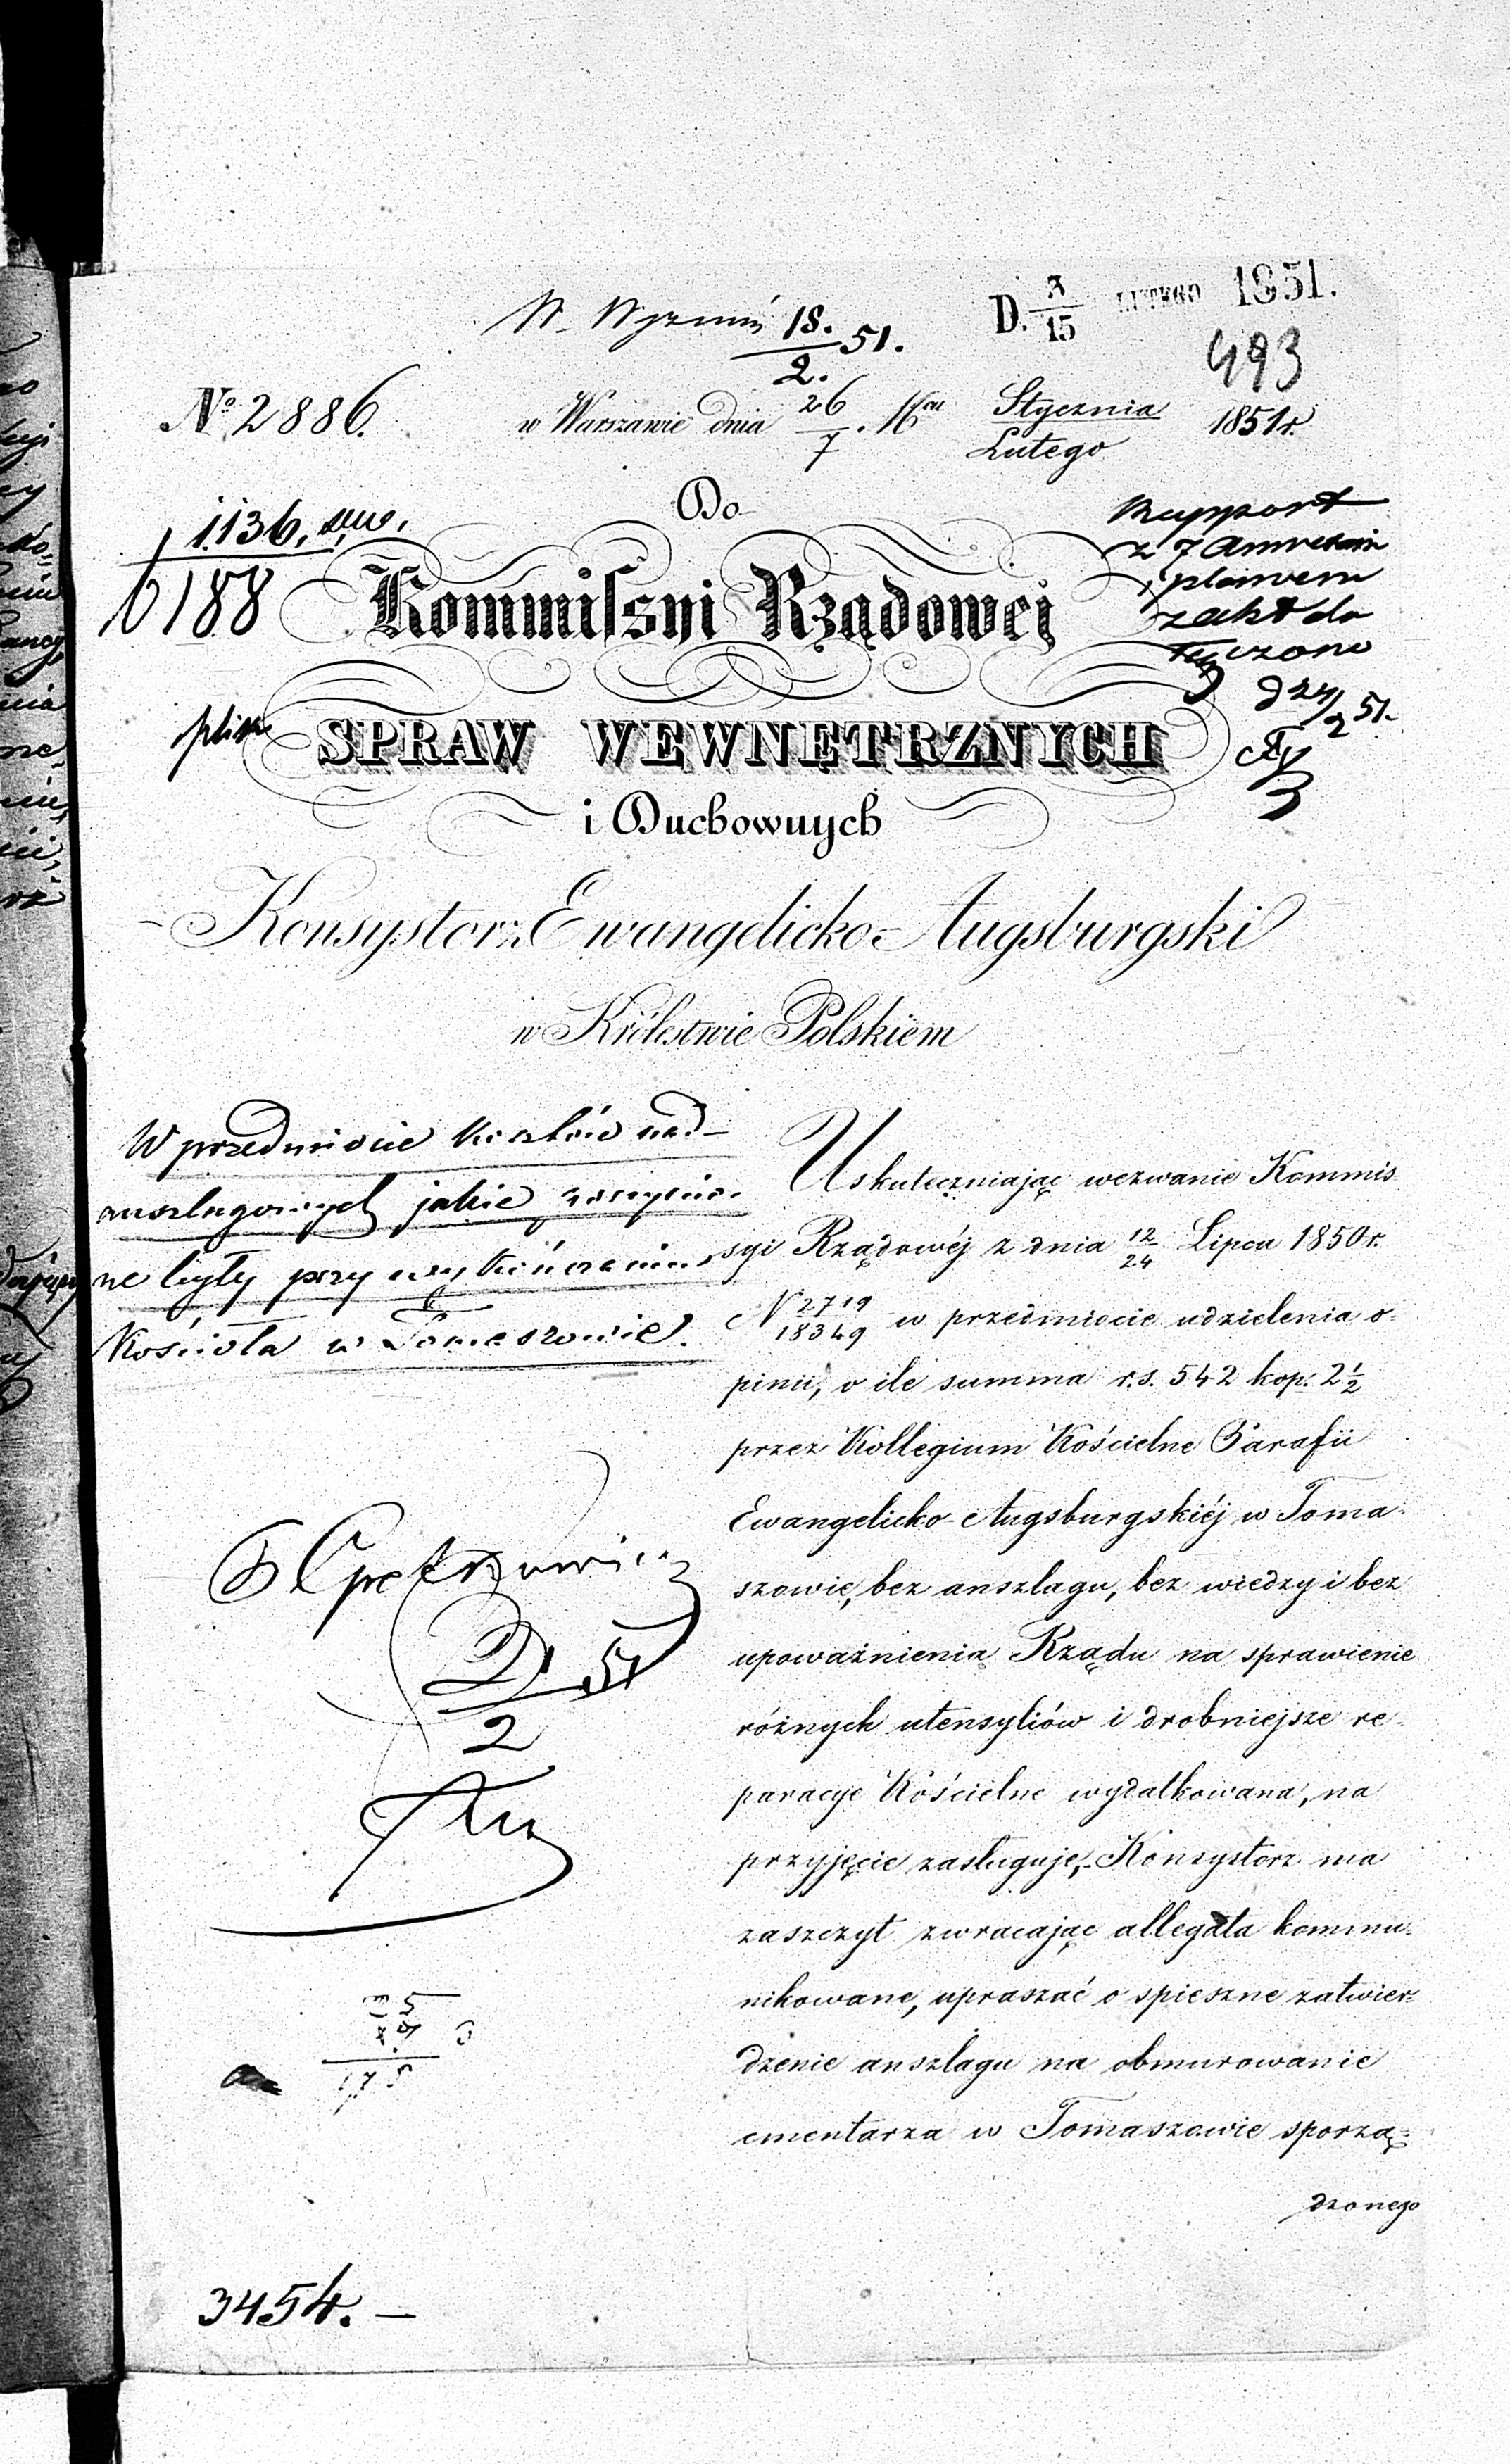 D. 3/15 LUTEGO 1851.
18./2. 51.
493
No 2886.
w Warszawie dnia 26/7 Stycznia/Lutego 1851 r.
Do
1136.
6188
Kommissyi Rządowej
Rapport
z
i planem
z akt do
łączono
d 24/2 51.
SPRAW WEWNĘTRZNYCH
i Duchownych
Konsystorz Ewangelicko-Augsburgski
w Królestwie Polskiem
W przedmiocie kosztów nad-
anszlagowych jakie poczynio-
ne były przy wykończeniu
Kościoła w Tomaszowie.
Uskuteczniając wezwanie Kommis
syi Rządowéj z dnia 12/24 Lipca 1850 r.
N 2719/18349 w przedmiocie udzielenia o-
pinii, o ile summa r.s. 542 kop: 2½
przez Kollegium Kościelne Parafii
Ewangelicko-Augsburgskiéj w Toma-
szowie, bez anszlagu, bez wiedzy i bez
upoważnienia Rządu na sprawienie
różnych utensyliów i drobniejsze re-
paracye Kościelne wydatkowana, na
przyjęcie zasługuje,- Konsystorz ma
zaszczyt zwracając allegata kommu-
nikowane, upraszać o spieszne zatwier-
dzenie anszlagu na obmurowanie
cmentarza w Tomaszowie sporzą-
dzonego
51
2
3454.-